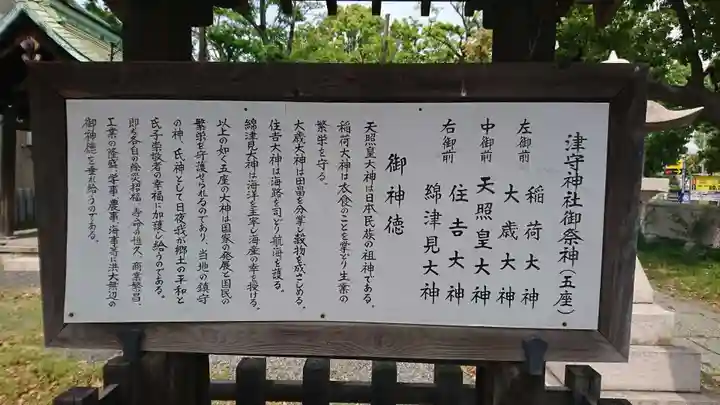 津守神社御祭神(五座)
左御前 稲荷大神
大歳大神
中御前 天照皇大神
住吉大神
右御前 綿津見大神
御神徳
天照皇大神は日本民族の祖神である。
稲荷大神は衣食のことを掌どり生業の
繁栄を守る。
大歳大神は田畠を分掌し穀物を成さしめる。
住吉大神は海路を司どり航海を護る。
綿津見大神は海洋を主宰し海産の幸を授ける。
以上の如く五座の大神は国家の発展と国民の
繁栄を守護せられるのであり、当地の鎮守
の神、氏神として日夜我が郷土の平和と
氏子崇敬者の幸福に加護し給うのである。
即ち各自の除災招福、寿命の恒久、商業繁昌、
工業の隆盛、学事、農事、海事等に洪大無辺の
御神徳を垂れ給うのである。